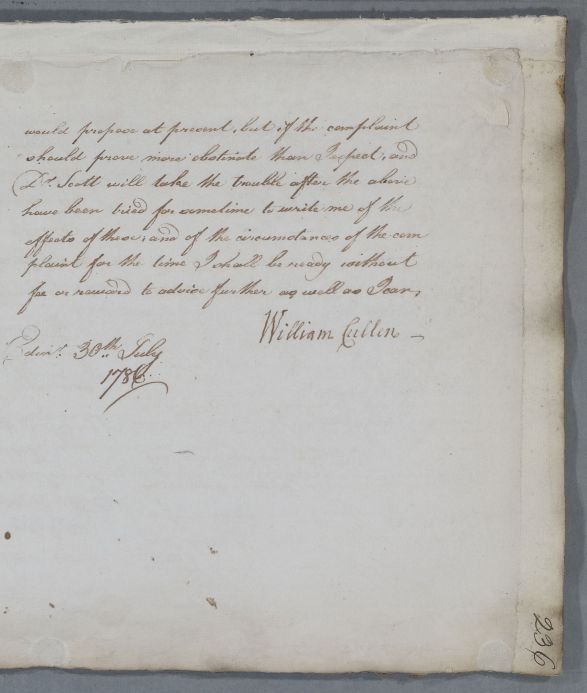 would propose at present, but if the complaint
should prove more obstinate than I expect, and
Dr. Scott will take the trouble after the above
have been tried for sometime to write me of the
effects of these; and of the circumstances of the com
plaint for the time I shall be ready without
fee or reward to advice further as well as I can,
William Cullen
Edinr. 30th. July
1786
236